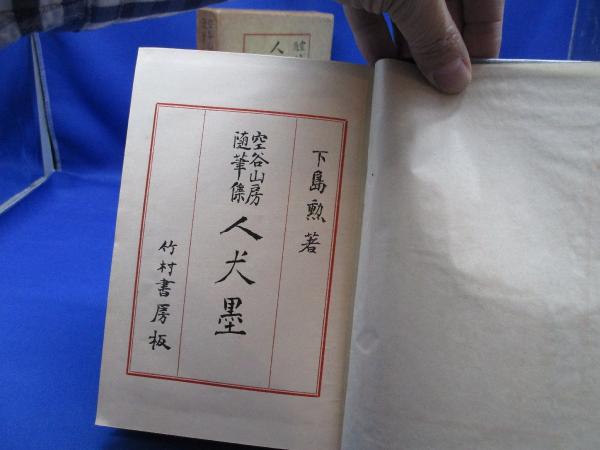 下島勲著
空谷山房
随筆集
人犬墨
竹村書房板
人